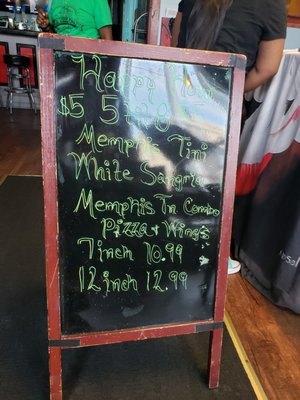 Happy Hour
$5
Memphis Tini
White Sangria
Memphis Tn Combo
Pizza & Wings
7inch 10.99
12inch 12.99